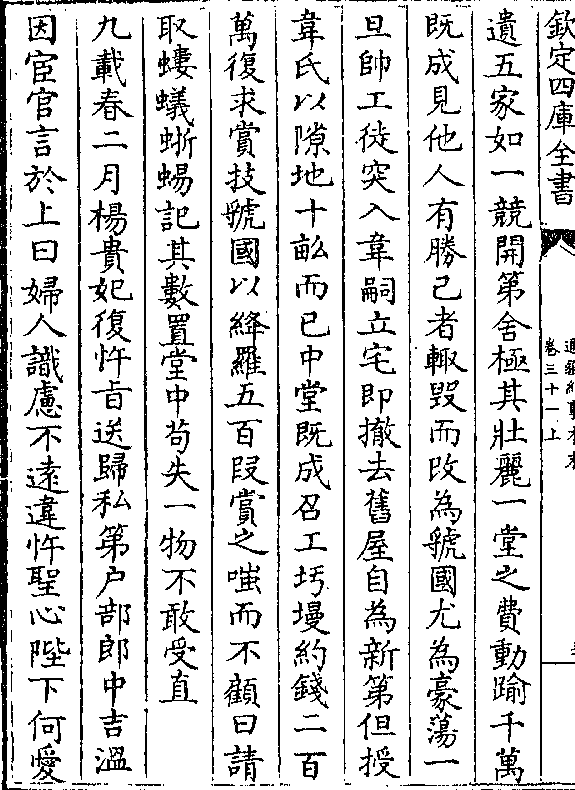 欽定四庫全書
通鑑紀事本末
卷三十一上
遺五家如一競開第舍極其壯麗一堂之費動踰千萬
既成見他人有勝己者輙毀而改為虢國尤為豪蕩一
旦帥工徒突入韋嗣立宅即撤去舊屋自為新第但授
韋氏以隙地十畝而已中堂既成召工圬墁約錢二百
萬復求賞技虢國以絳羅五百段賞之嗤而不顧曰請
取螻蟻蜥蜴記其數置堂中茍失一物不敢受直
九載春二月楊貴妃復忤㫖送歸私第户部郎中吉温
因宦官言於上曰婦人識慮不遠違忤聖心陛下何愛